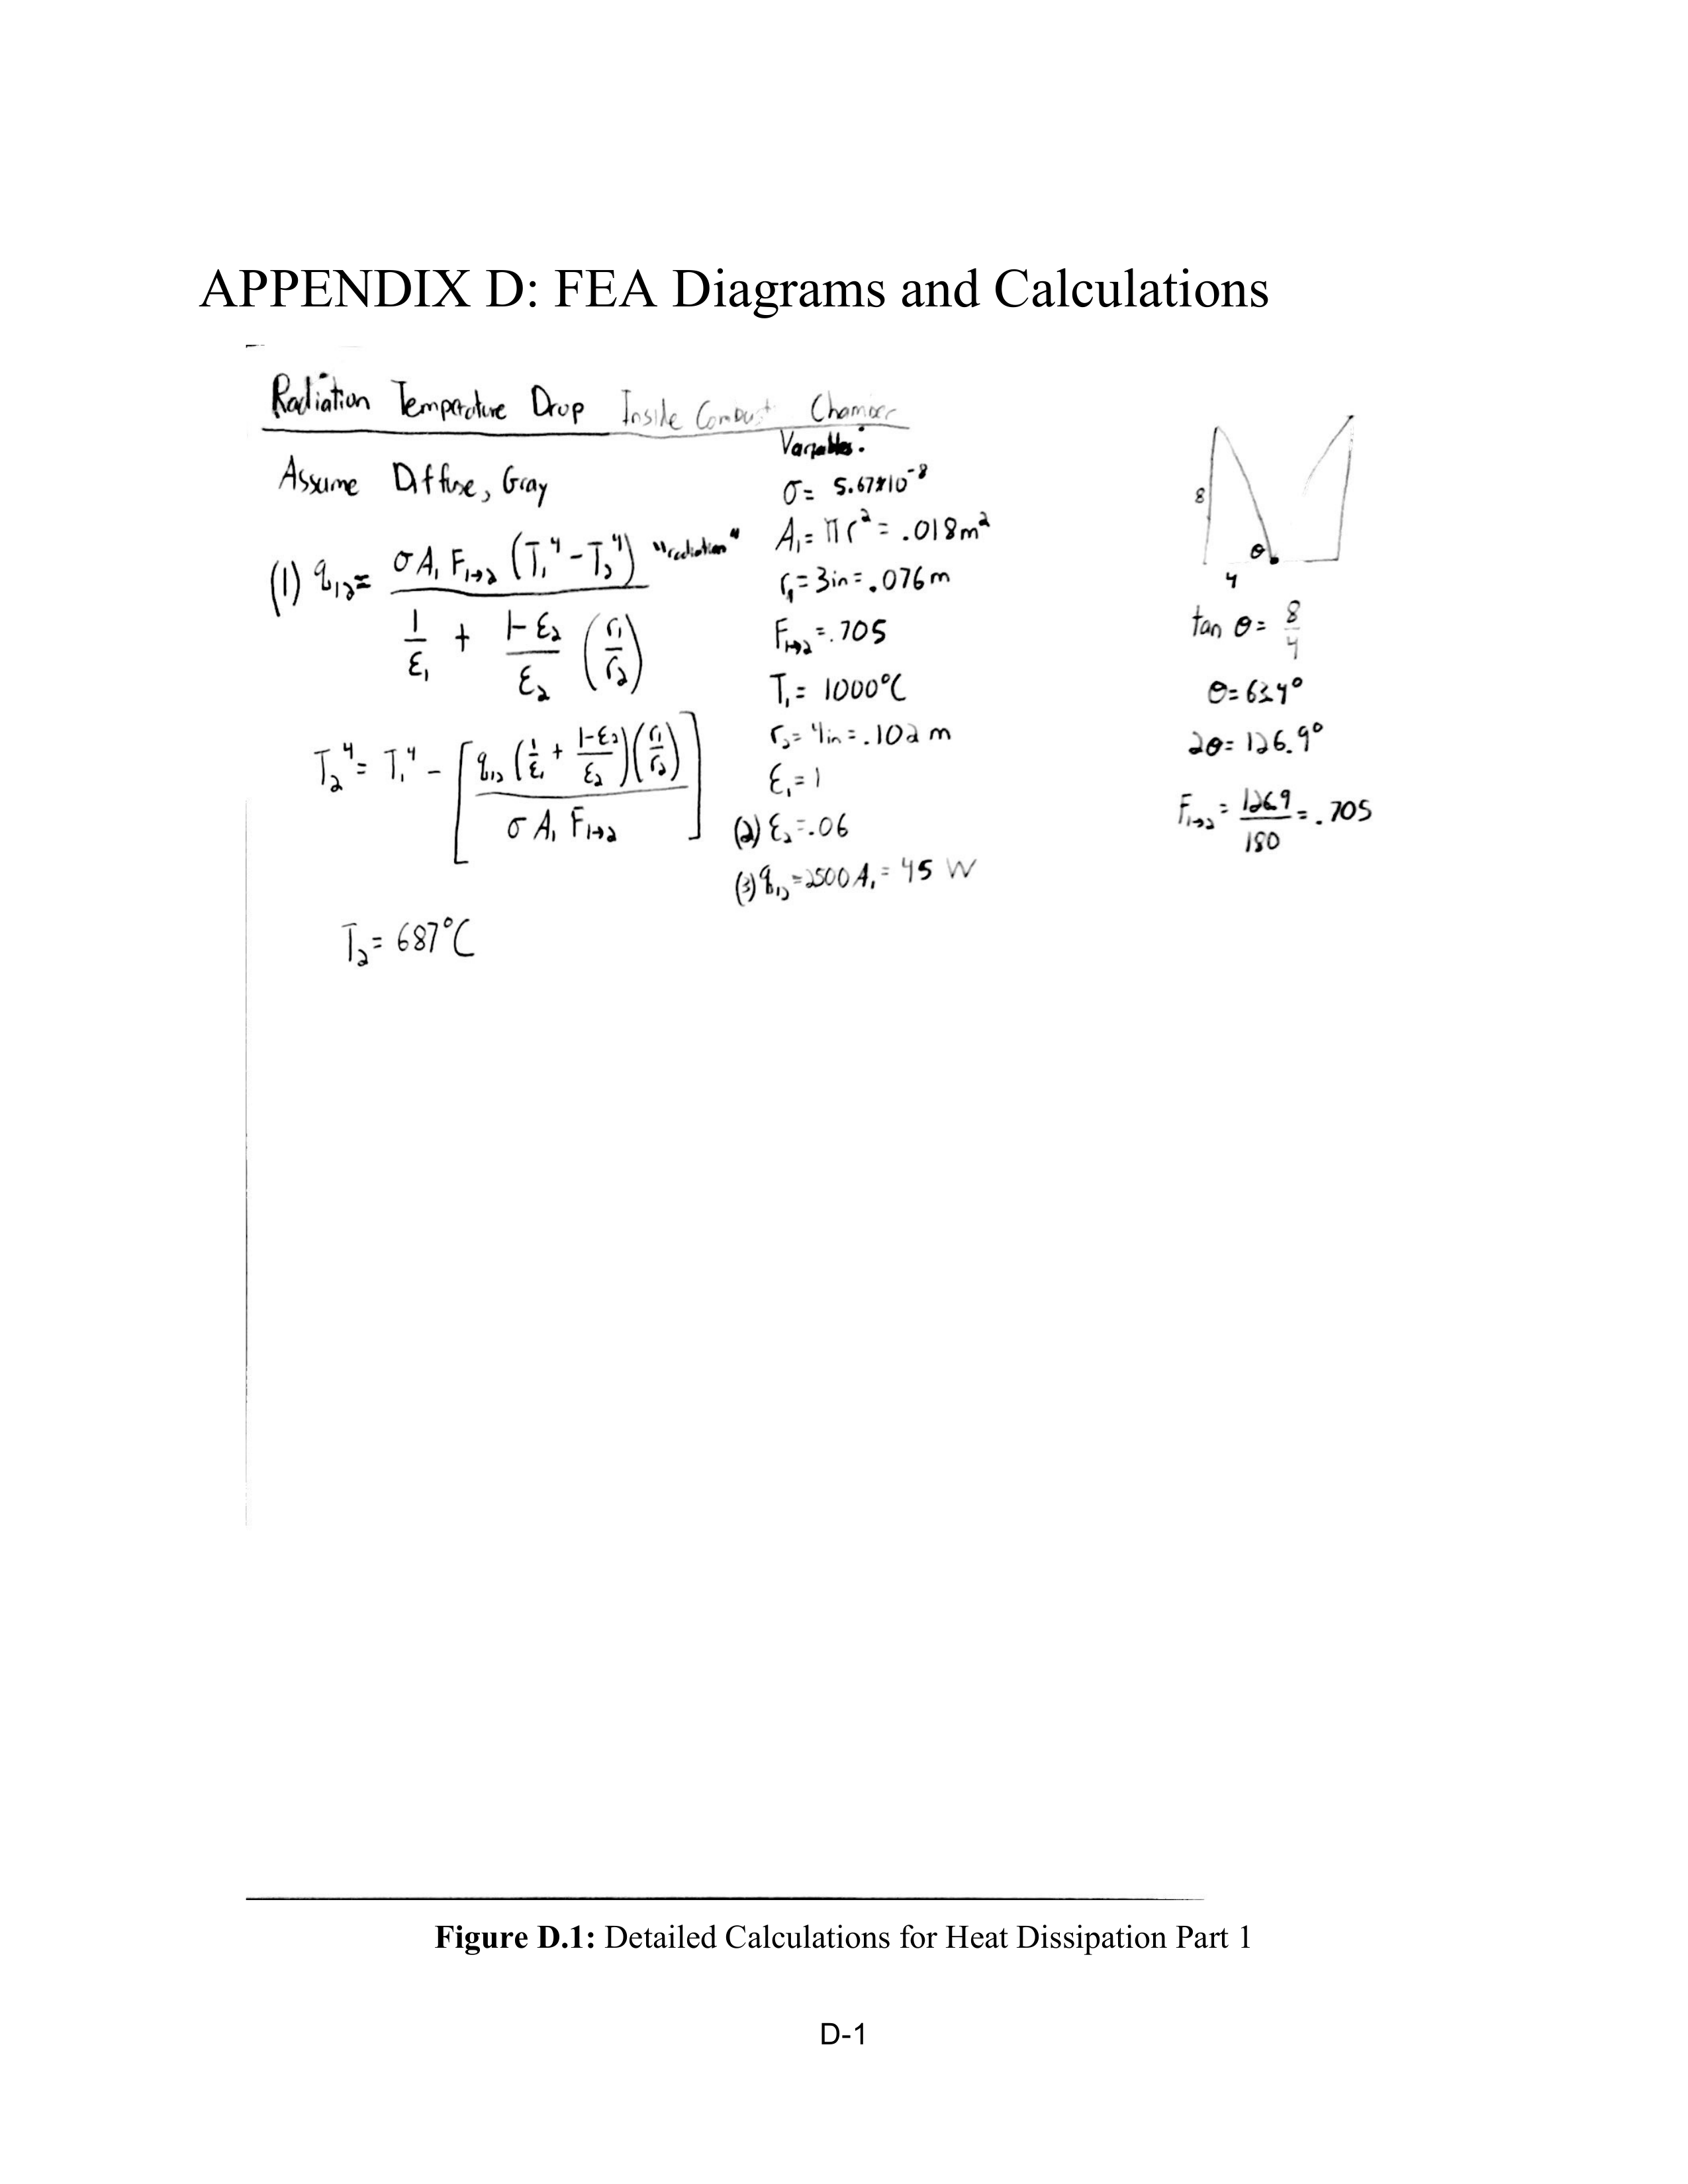 APPENDIX D: FEA Diagrams and Calculations
Radiation Temperature Drop Inside Combust Chamber
Assume Diffuse, Gray
(1) q₁₂ = σ A₁ F₁→₂ (T₁⁴ - T₂⁴) / (1/ε₁ + (1-ε₂)/ε₂ (r₁/r₂)) "radiation"
T₂⁴ = T₁⁴ - [q₁₂ (1/ε₁ + (1-ε₂)/ε₂)(r₁/r₂) / σ A₁ F₁→₂]
T₂ = 687°C
Variables:
σ = 5.67*10⁻⁸
A₁ = πr² = .018m²
r₁ = 3in = .076m
F₁→₂ = .705
T₁ = 1000°C
r₂ = 4in = .102 m
ε₁ = 1
(2) ε₂ = .06
(3) q₁₂ = 2500 A₁ = 45 W
8
θ
4
tan θ = 8/4
θ = 63.4°
2θ = 126.9°
F₁→₂ = 126.9/180 = .705
Figure D.1: Detailed Calculations for Heat Dissipation Part 1
D-1